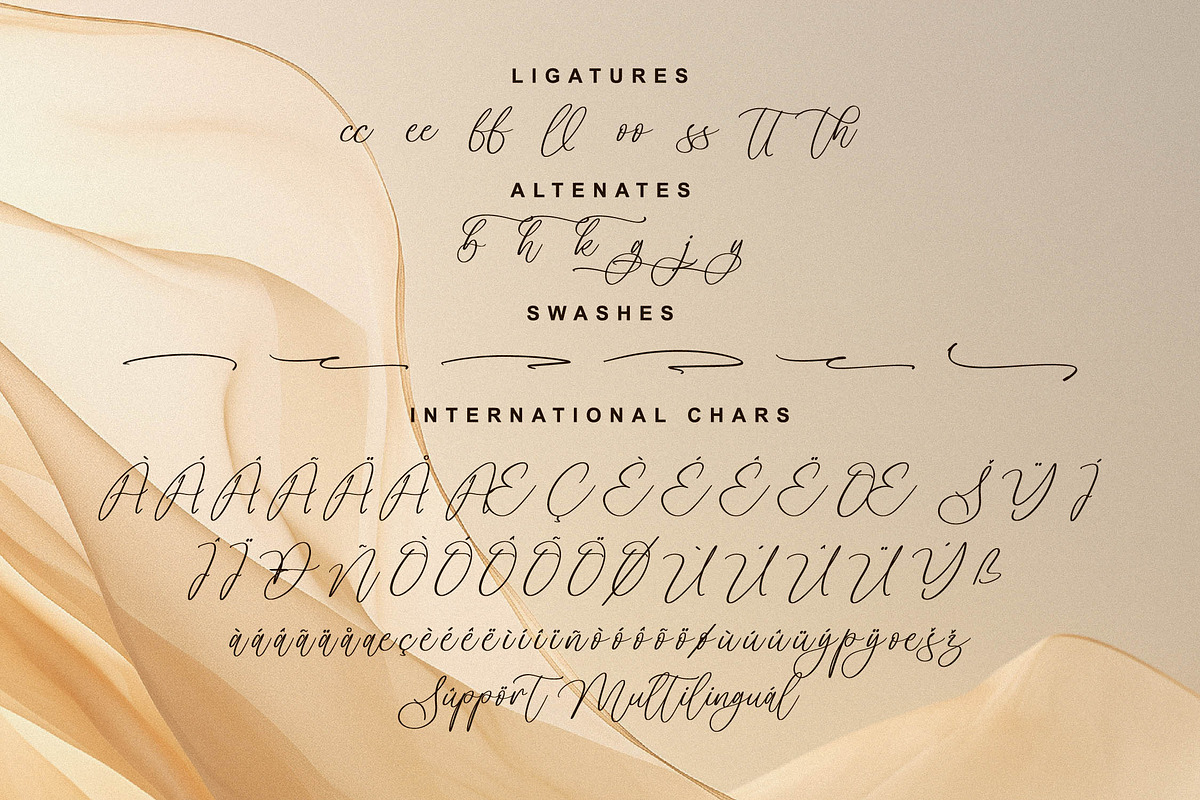 LIGATURES
cc ee ff ll oo ss tt th
ALTENATES
b h k g j y
SWASHES
INTERNATIONAL CHARS
ÀÁÂÃÄÅÆÇÈÉÊËŒŠŸÍ
ÎÏÐÑÒÓÔÕÖØÙÚÛÜÝß
àáâãäåæçèéêëìíîïñòóôõöøùúûüýþÿœšž
Súppört Multilinguál